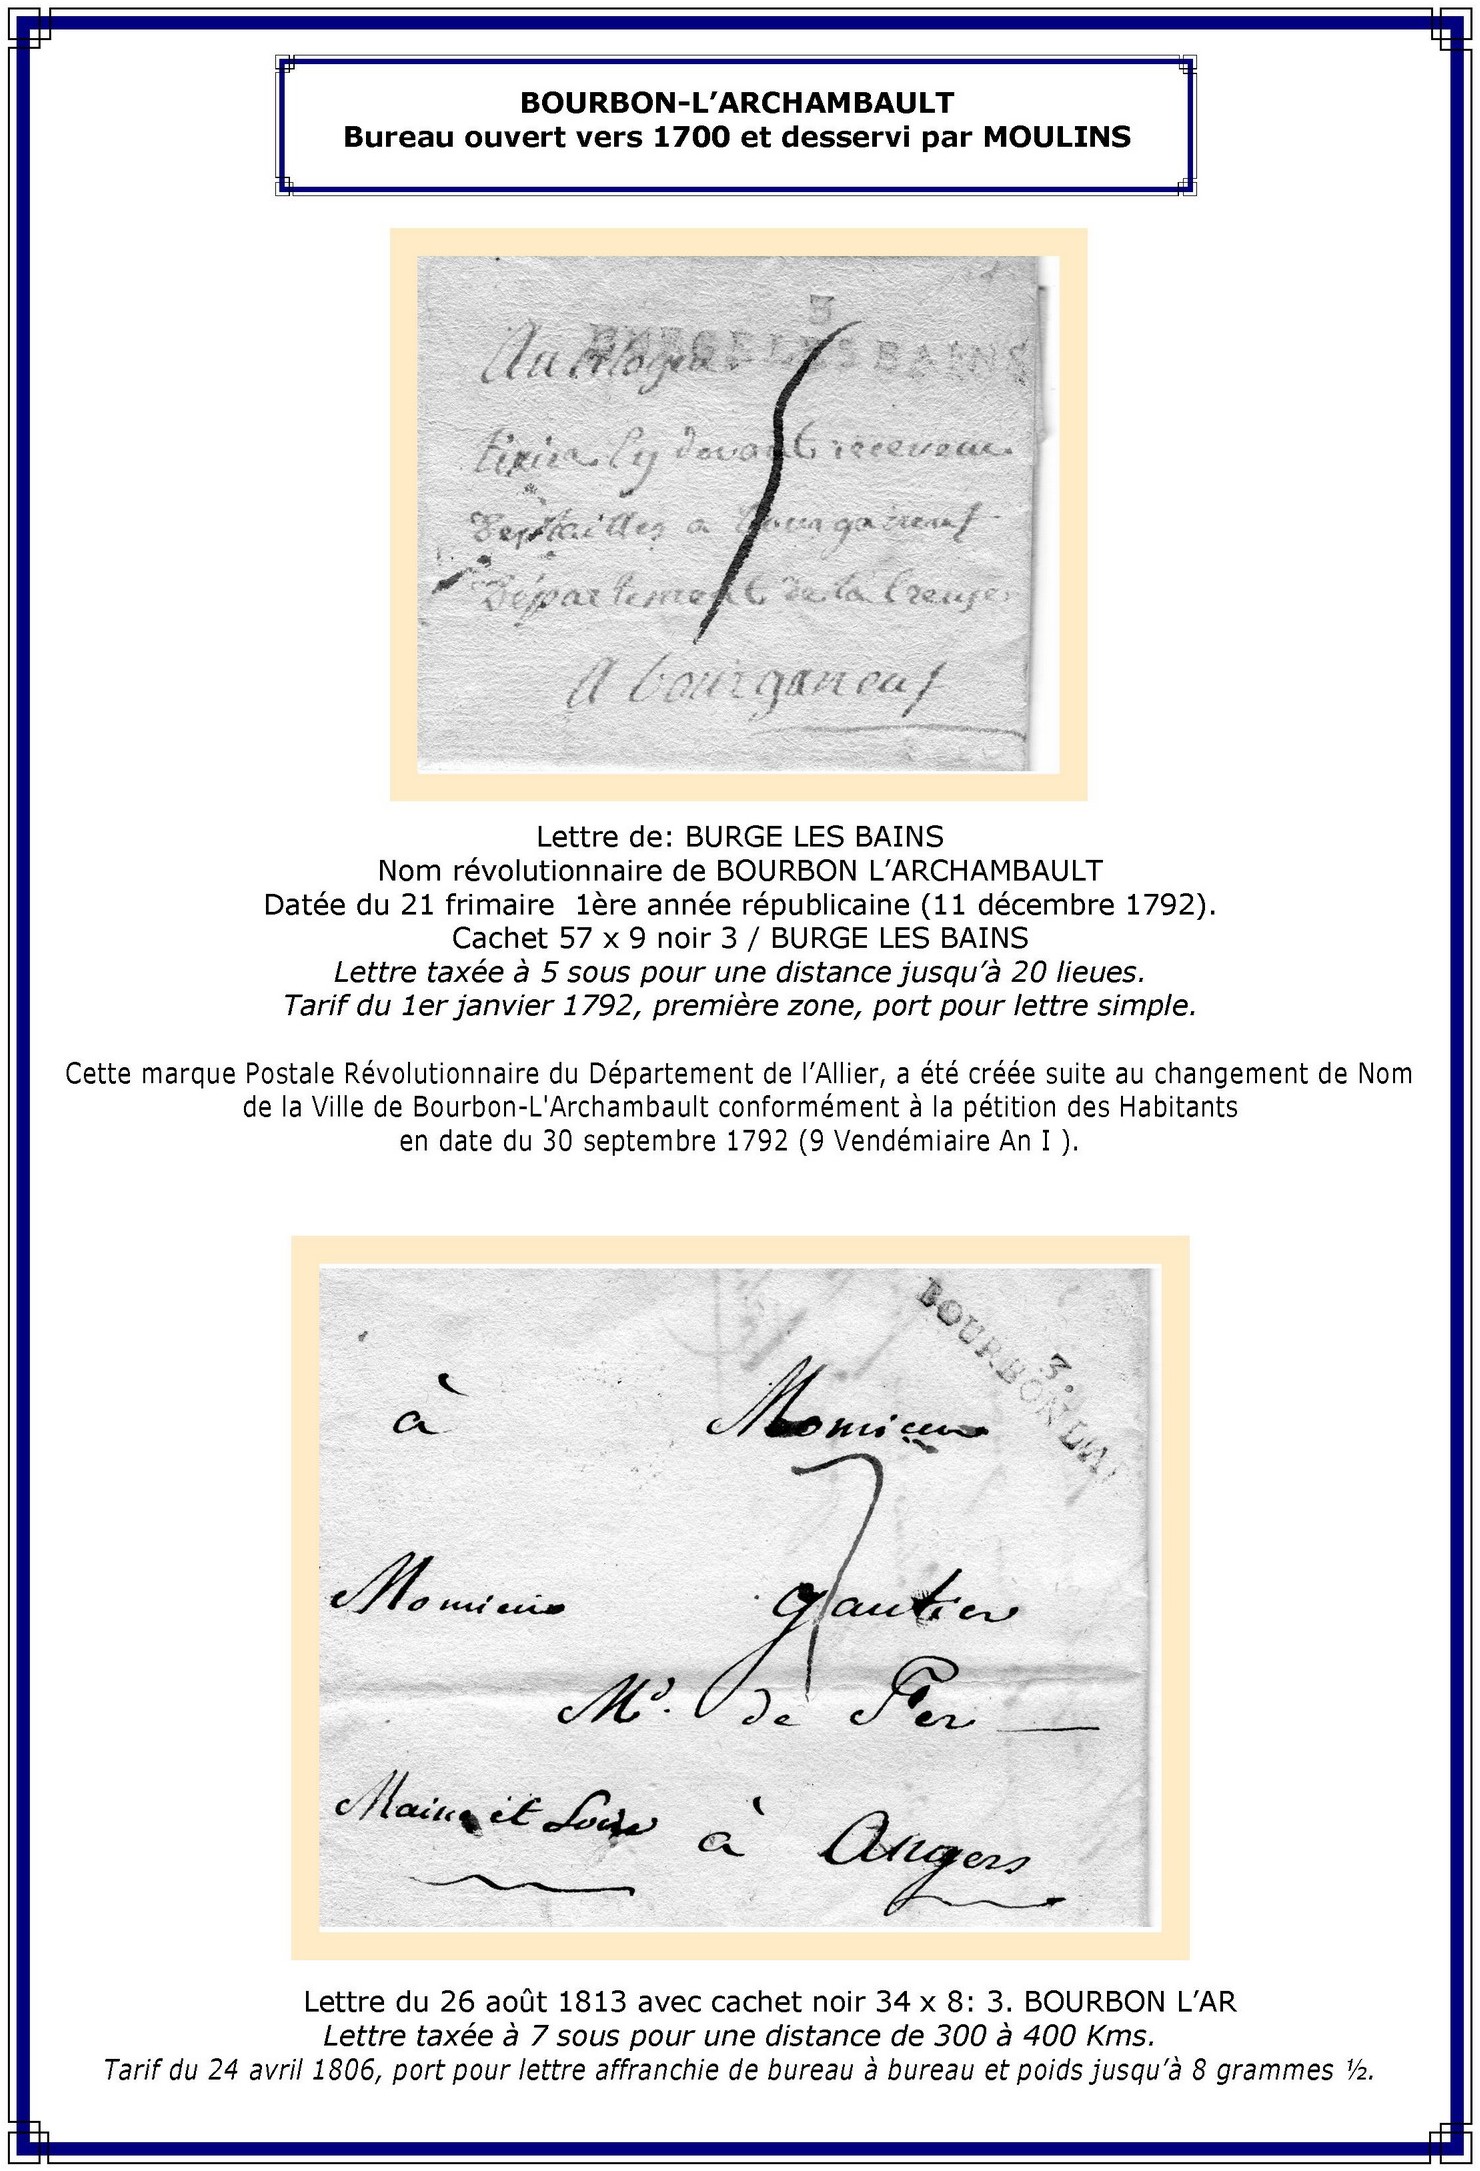 BOURBON-L’ARCHAMBAULT
Bureau ouvert vers 1700 et desservi par MOULINS
3
BURGE LES BAINS
Au citoyen
5
cy devant receveur
Des tailles a bourganeuf
Département de la Creuse
A bourganeuf
Lettre de: BURGE LES BAINS
Nom révolutionnaire de BOURBON L’ARCHAMBAULT
Datée du 21 frimaire  1ère année républicaine (11 décembre 1792).
Cachet 57 x 9 noir 3 / BURGE LES BAINS
Lettre taxée à 5 sous pour une distance jusqu’à 20 lieues.
Tarif du 1er janvier 1792, première zone, port pour lettre simple.
Cette marque Postale Révolutionnaire du Département de l’Allier, a été créée suite au changement de Nom
de la Ville de Bourbon-L'Archambault conformément à la pétition des Habitants
en date du 30 septembre 1792 (9 Vendémiaire An I ).
3.
BOURBON L'AR
à Monsieur
7
Monsieur gautier
Md. de Fer
Maine et Loire à Angers
Lettre du 26 août 1813 avec cachet noir 34 x 8: 3. BOURBON L’AR
Lettre taxée à 7 sous pour une distance de 300 à 400 Kms.
Tarif du 24 avril 1806, port pour lettre affranchie de bureau à bureau et poids jusqu’à 8 grammes ½.